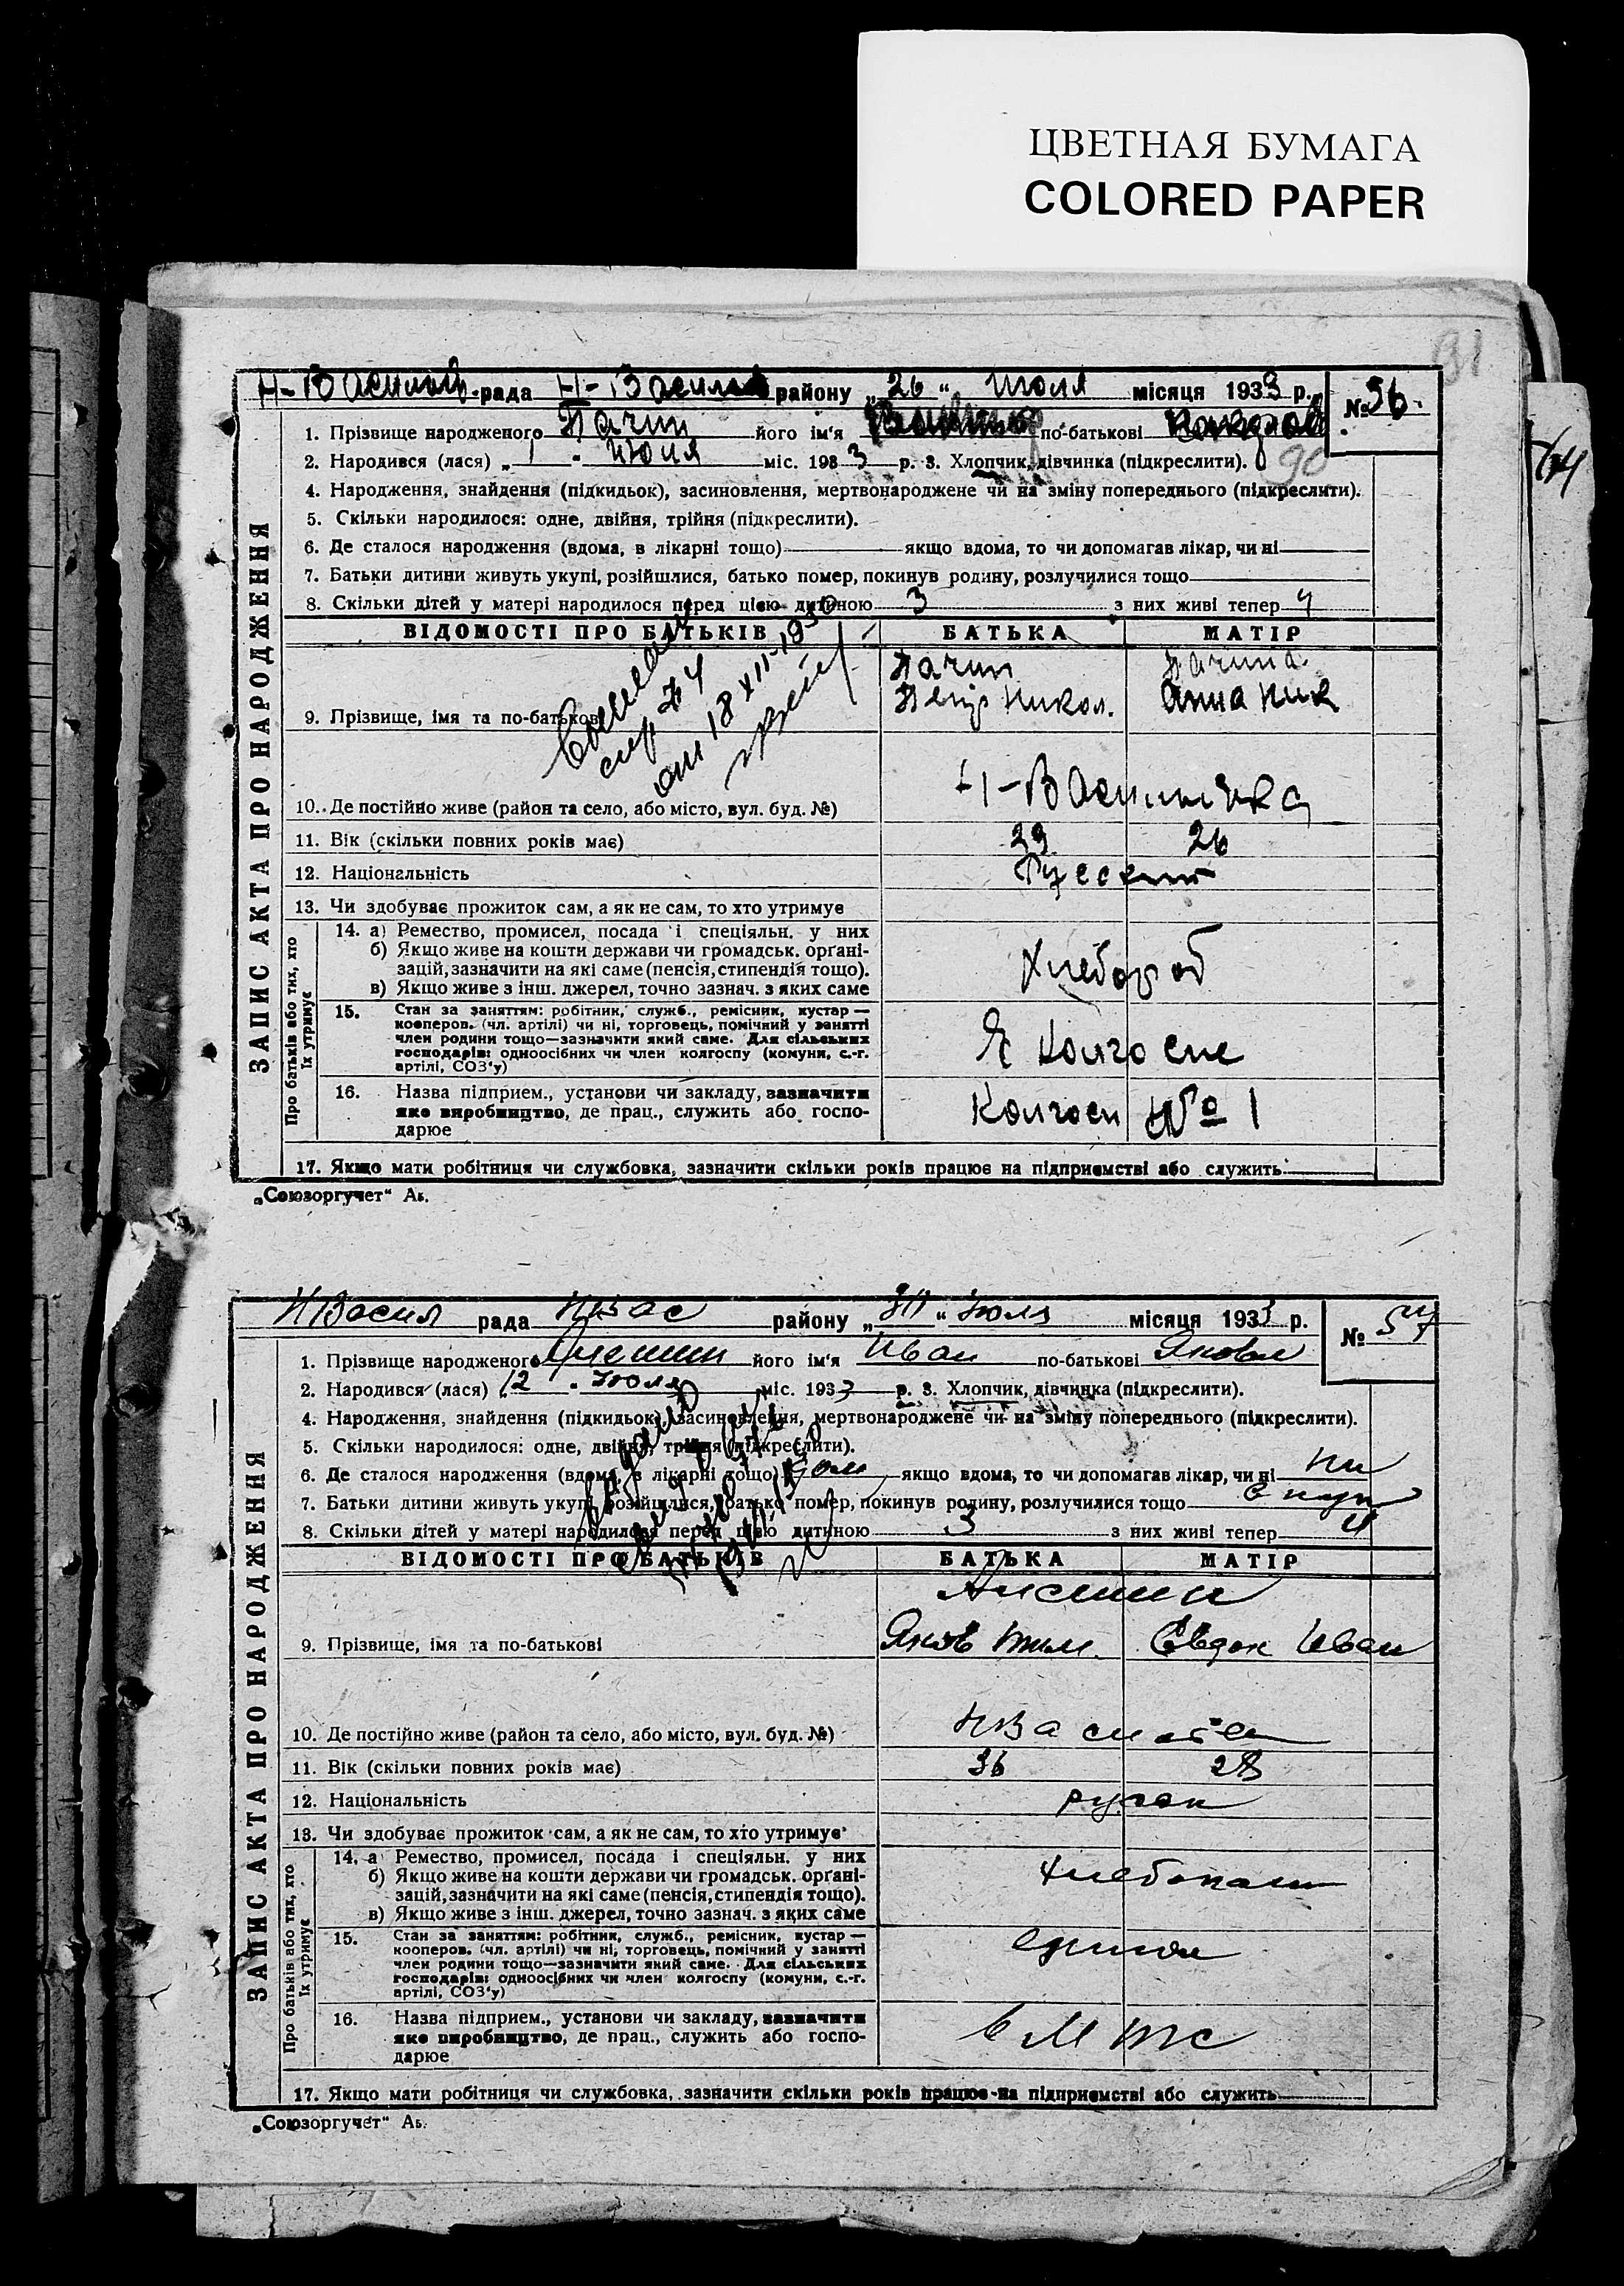 ЦВЕТНАЯ БУМАГА
COLORED PAPER
91
рада Н-Васил району „26“ июля місяця 1933 р. №56.
1. Прізвище народженого Пачин його ім'я по-батькові
2. Народився (лася) „1 " июля міс. 1933 р. 3. Хлопчик, дівчинка (підкреслити). 90
4. Народження, знайдення (підкидьок), засиновлення, мертвонароджене чи на зміну попереднього (підкреслити).
5. Скільки народилося: одне, двійня, трійня (підкреслити).
6. Де сталося народження (вдома, в лікарні тощо) якщо вдома, то чи допомагав лікар, чи ні
7. Батьки дитини живуть укупі, розійшлися, батько помер, покинув родину, розлучилися тощо
8. Скільки дітей у матері народилося перед цією дитиною 3 з них живі тепер 4
ВІДОМОСТІ ПРО БАТЬКІВ БАТЬКА МАТІР
Пачин Пачина
9. Прізвище, імя та по-батькові Петр Никол. Анна Ник
10. Де постійно живе (район та село, або місто, вул. буд. №) Н-Васильевка
11. Вік (скільки повних років має) 29 26
12. Національність Русский
13. Чи здобуває прожиток сам, а як не сам, то хто утримує
14. а) Ремество, промисел, посада і спеціяльн. у них
б) Якщо живе на кошти держави чи громадськ. орґані-
зацій, зазначити на які саме (пенсія, стипендія тощо). Хлебороб
в) Якщо живе з інш. джерел, точно зазнач. з яких саме
15. Стан за заняттям: робітник, служб., ремісник, кустар —
кооперов. (чл. артілі) чи ні, торговець, помічний у занятті
член родини тощо—зазначити який саме. Для сільських
господарів: одноосібних чи член колгоспу (комуни, с.-г. Колгоспе
артілі, СОЗ'у)
16. Назва підприєм., установи чи закладу, зазначити
яке виробництво, де прац., служить або госпо- Колгосп № 1
дарюе
17. Якщо мати робітниця чи службовка, зазначити скільки років працює на підприємстві або служить
ЗАПИС АКТА ПРО НАРОДЖЕННЯ
Про батьків або тих, хто
їх утримує
„Союзоргучет“ Аь.
НВасил рада НВас району „ “ Июля місяця 1933 р. № 57
1. Прізвище народженого його ім'я Иван по-батькові Яковл
2. Народився (лася) 12 " Июля міс. 1933 р. 3. Хлопчик, дівчинка (підкреслити).
4. Народження, знайдення (підкидьок), засиновлення, мертвонароджене чи на зміну попереднього (підкреслити).
5. Скільки народилося: одне, двійня, трійня (підкреслити).
6. Де сталося народження (вдома, в лікарні тощо) дом якщо вдома, то чи допомагав лікар, чи ні ни
7. Батьки дитини живуть укупі, розійшлися, батько помер, покинув родину, розлучилися тощо
8. Скільки дітей у матері народилося перед цією дитиною 3 з них живі тепер 4
ВІДОМОСТІ ПРО БАТЬКІВ БАТЬКА МАТІР
9. Прізвище, імя та по-батькові Яков Тим. Евдок Иван
10. Де постійно живе (район та село, або місто, вул. буд. №)
11. Вік (скільки повних років має) 36 28
12. Національність
13. Чи здобуває прожиток сам, а як не сам, то хто утримує
14. а Ремество, промисел, посада і спеціяльн. у них
б) Якщо живе на кошти держави чи громадськ. орґані- Хлебопаш
зацій, зазначити на які саме (пенсія, стипендія тощо).
в) Якщо живе з інш. джерел, точно зазнач. з яких саме
15. Стан за заняттям: робітник, служб., ремісник, кустар —
кооперов. (чл. артілі) чи ні, торговець, помічний у занятті
член родини тощо—зазначити який саме. Для сільських
господарів: одноосібних чи член колгоспу (комуни, с.-г.
артілі, СОЗ'у)
16. Назва підприєм., установи чи закладу, зазначити
яке виробництво, де прац., служить або госпо- в МТС
дарюе
17. Якщо мати робітниця чи службовка, зазначити скільки років працює на підприємстві або служить
ЗАПИС АКТА ПРО НАРОДЖЕННЯ
Про батьків або тих, хто
їх утримує
„Союзоргучет“ Аь.